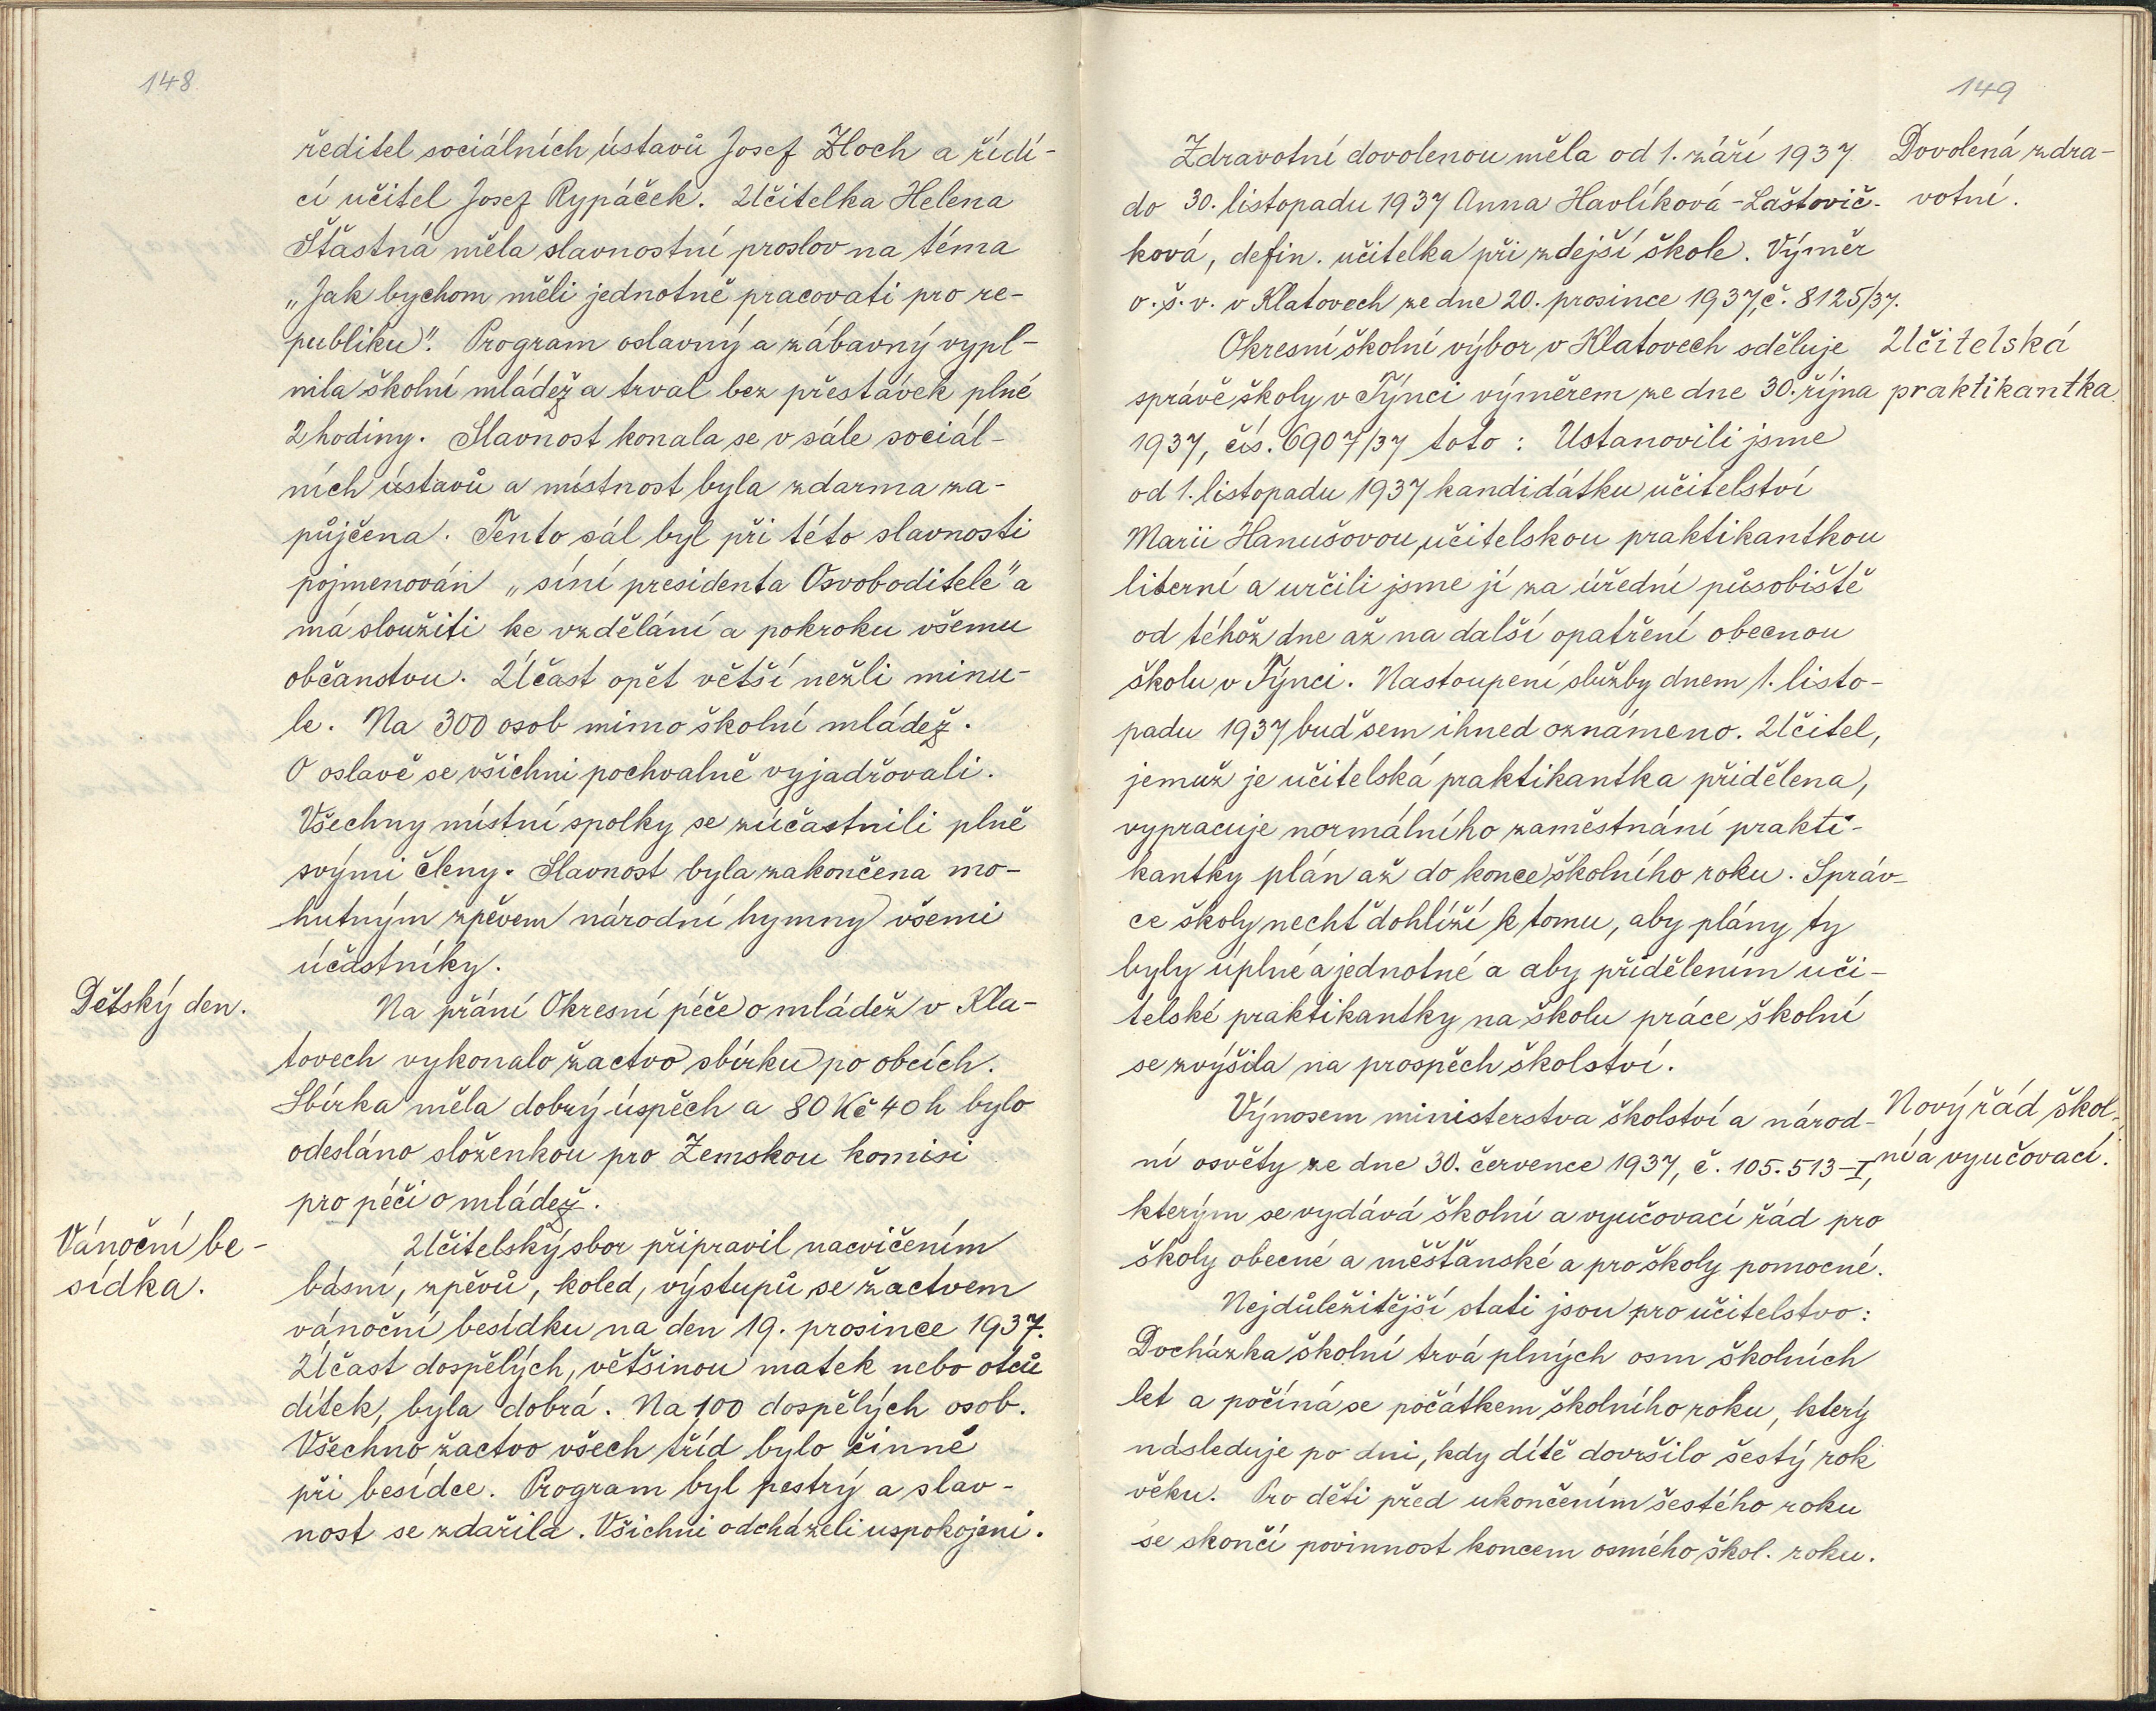 148
ředitel sociálních ústavů Josef Zloch a řídí-
cí učitel Josef Rypáček. Učitelka Helena
Šťastná měla slavnostní proslov na téma
„Jak bychom měli jednotně pracovati pro re-
publiku". Program oslavný a zábavný vypl-
nila školní mládež a trval bez přestávek plné
2 hodiny. Slavnost konala se v sále sociál-
ních ústavů a místnost byla zdarma za-
půjčena. Tento sál byl při této slavnosti
pojmenován „síní presidenta Osvoboditele" a
má sloužiti ke vzdělání a pokroku všemu
občanstvu. Účast opět větší nežli minu-
le. Na 300 osob mimo školní mládež.
O oslavě se všichni pochvalně vyjadřovali.
Všechny místní spolky se zúčastnili plně
svými členy. Slavnost byla zakončena mo-
hutným zpěvem národní hymny všemi
účastníky.
Dětský den.
Na přání Okresní péče o mládež v Kla-
tovech vykonalo žactvo sbírku po obcích.
Sbírka měla dobrý úspěch a 80 Kč 40 h bylo
odesláno složenkou pro Zemskou komisi
pro péči o mládež.
Vánoční be-
sídka.
Učitelský sbor připravil nacvičením
básní, zpěvů, koled, výstupů se žactvem
vánoční besídku na den 19. prosince 1937.
Účast dospělých, většinou matek nebo otců
dítek, byla dobrá. Na 100 dospělých osob.
Všechno žactvo všech tříd bylo činné
při besídce. Program byl pestrý a slav-
nost se zdařila. Všichni odcházeli uspokojeni.
149
Zdravotní dovolenou měla od 1. září 1937
do 30. listopadu 1937 Anna Havlíková-Laštovič-
ková, defin. učitelka při zdejší škole. Výměr
o. š. v. v Klatovech ze dne 20. prosince 1937, č. 8125/37.
Dovolená zdra-
votní.
Okresní školní výbor v Klatovech sděluje
správě školy v Týnci výměrem ze dne 30. října
1937, čís. 6907/37 toto: Ustanovili jsme
od 1. listopadu 1937 kandidátku učitelství
Marii Hanušovou, učitelskou praktikantkou
literní a určili jsme jí za úřední působiště
od téhož dne až na další opatření obecnou
školu v Týnci. Nastoupení služby dnem 1. listo-
padu 1937 buď sem ihned oznámeno. Učitel,
jemuž je učitelská praktikantka přidělena,
vypracuje normálního zaměstnání prakti-
kantky plán až do konce školního roku. Správ-
ce školy nechť dohlíží k tomu, aby plány ty
byly úplné a jednotné a aby přidělením uči-
telské praktikantky na školu práce školní
se zvýšila na prospěch školství.
Učitelská
praktikantka
Výnosem ministerstva školství a národ-
ní osvěty ze dne 30. července 1937, č. 105.513-I,
kterým se vydává školní a vyučovací řád pro
školy obecné a měšťanské a pro školy pomocné.
Nový řád škol-
ní a vyučovací.
Nejdůležitější stati jsou pro učitelstvo:
Docházka školní trvá plných osm školních
let a počíná se počátkem školního roku, který
následuje po dni, kdy dítě dovršilo šestý rok
věku. Pro děti před ukončením šestého roku
se skončí povinnost koncem osmého škol. roku.